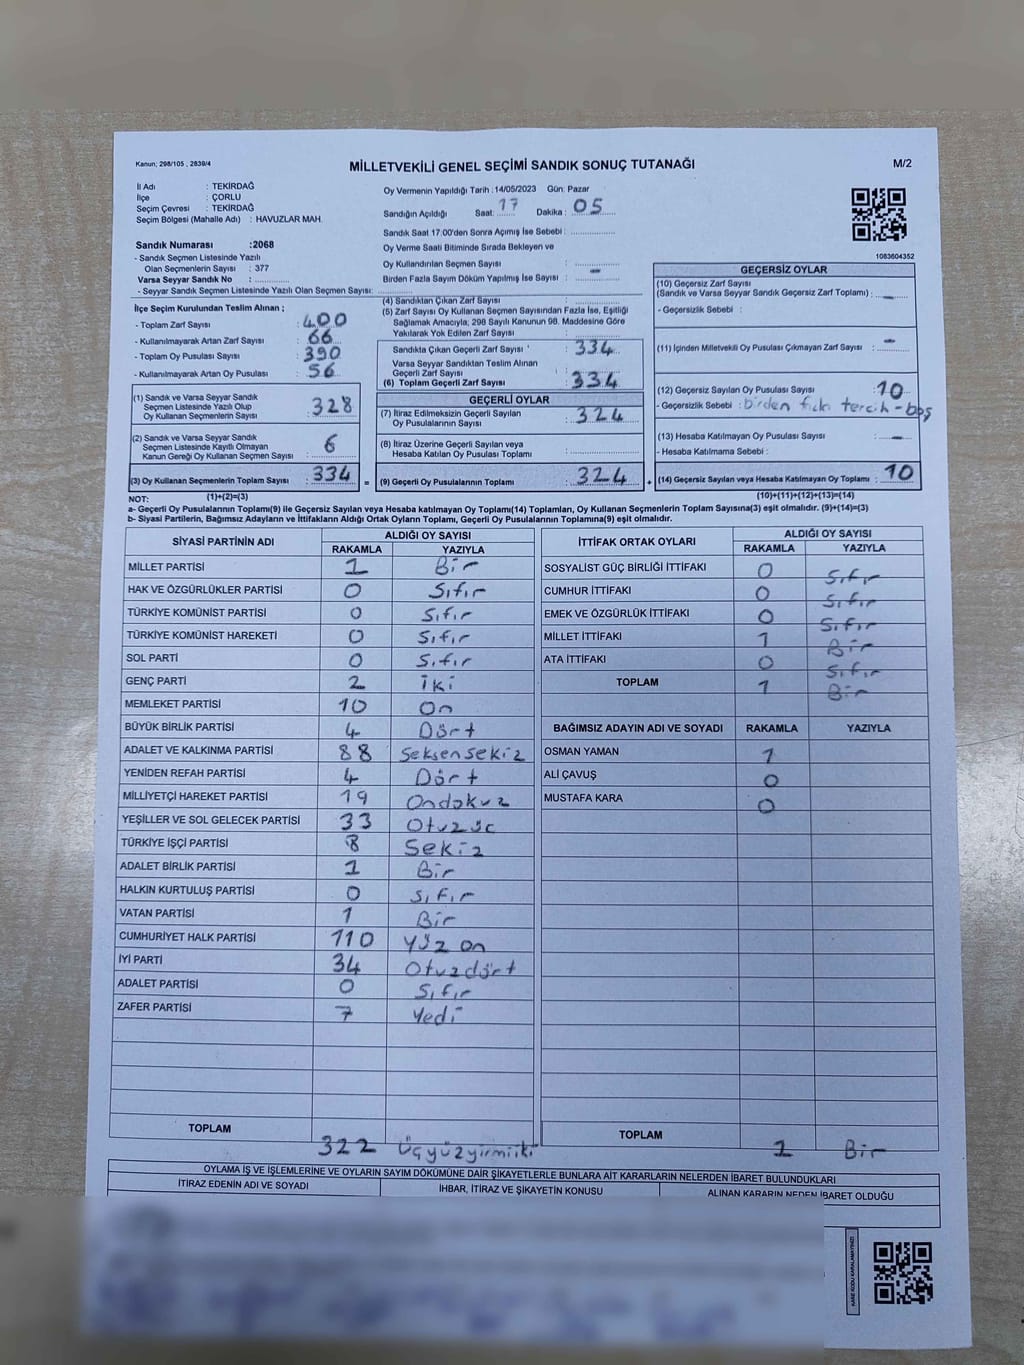 Kanun; 298/105 , 2839/4
MİLLETVEKİLİ GENEL SEÇİMİ SANDIK SONUÇ TUTANAĞI
M/2
İl Adı : TEKİRDAĞ
İlçe : ÇORLU
Seçim Çevresi : TEKİRDAĞ
Seçim Bölgesi (Mahalle Adı) : HAVUZLAR MAH.
Sandık Numarası :2068
- Sandık Seçmen Listesinde Yazılı
Olan Seçmenlerin Sayısı : 377
Varsa Seyyar Sandık No :
- Seyyar Sandık Seçmen Listesinde Yazılı Olan Seçmen Sayısı:
Oy Vermenin Yapıldığı Tarih :14/05/2023 Gün: Pazar
Sandığın Açıldığı Saat: 17 Dakika : 05
Sandık Saat 17.00'den Sonra Açımış İse Sebebi :
Oy Verme Saati Bitiminde Sırada Bekleyen ve
Oy Kullandırılan Seçmen Sayısı :
Birden Fazla Sayım Döküm Yapılmış İse Sayısı : -
1083604352
İlçe Seçim Kurulundan Teslim Alınan ;
- Toplam Zarf Sayısı : 400
- Kullanılmayarak Artan Zarf Sayısı : 66
- Toplam Oy Pusulası Sayısı : 390
- Kullanılmayarak Artan Oy Pusulası : 56
(1) Sandık ve Varsa Seyyar Sandık
Seçmen Listesinde Yazılı Olup
Oy Kullanan Seçmenlerin Sayısı : 328
(2) Sandık ve Varsa Seyyar Sandık
Seçmen Listesinde Kayıtlı Olmayan
Kanun Gereği Oy Kullanan Seçmen Sayısı : 6
(3) Oy Kullanan Seçmenlerin Toplam Sayısı : 334 =
(1)+(2)=(3)
(4) Sandıktan Çıkan Zarf Sayısı :
(5) Zarf Sayısı Oy Kullanan Seçmen Sayısından Fazla İse, Eşitliği
Sağlamak Amacıyla; 298 Sayılı Kanunun 98. Maddesine Göre
Yakılarak Yok Edilen Zarf Sayısı :
Sandıkta Çıkan Geçerli Zarf Sayısı : 334
Varsa Seyyar Sandıktan Teslim Alınan
Geçerli Zarf Sayısı :
(6) Toplam Geçerli Zarf Sayısı : 334
GEÇERLİ OYLAR
(7) İtiraz Edilmeksizin Geçerli Sayılan
Oy Pusulalarının Sayısı : 324
(8) İtiraz Üzerine Geçerli Sayılan veya
Hesaba Katılan Oy Pusulası Toplamı :
(9) Geçerli Oy Pusulalarının Toplamı : 324 +
GEÇERSİZ OYLAR
(10) Geçersiz Zarf Sayısı
(Sandık ve Varsa Seyyar Sandık Geçersiz Zarf Toplamı) : -
- Geçersizlik Sebebi :
(11) İçinden Milletvekili Oy Pusulası Çıkmayan Zarf Sayısı : -
(12) Geçersiz Sayılan Oy Pusulası Sayısı : 10
- Geçersizlik Sebebi : birden tercih - boş
(13) Hesaba Katılmayan Oy Pusulası Sayısı : -
- Hesaba Katılmama Sebebi :
(14) Geçersiz Sayılan veya Hesaba Katılmayan Oy Toplamı : 10
(10)+(11)+(12)+(13)=(14)
NOT:
a- Geçerli Oy Pusulalarının Toplamı(9) ile Geçersiz Sayılan veya Hesaba katılmayan Oy Toplamı(14) Toplamları, Oy Kullanan Seçmenlerin Toplam Sayısına(3) eşit olmalıdır. (9)+(14)=(3)
b- Siyasi Partilerin, Bağımsız Adayların ve İttifakların Aldığı Ortak Oyların Toplamı, Geçerli Oy Pusulalarının Toplamına(9) eşit olmalıdır.
SİYASİ PARTİNİN ADI ALDIĞI OY SAYISI
RAKAMLA YAZIYLA
MİLLET PARTİSİ 1 Bir
HAK VE ÖZGÜRLÜKLER PARTİSİ 0 Sıfır
TÜRKİYE KOMÜNİST PARTİSİ 0 Sıfır
TÜRKİYE KOMÜNİST HAREKETİ 0 Sıfır
SOL PARTİ 0 Sıfır
GENÇ PARTİ 2 İki
MEMLEKET PARTİSİ 10 On
BÜYÜK BİRLİK PARTİSİ 4 Dört
ADALET VE KALKINMA PARTİSİ 88 Seksensekiz
YENİDEN REFAH PARTİSİ 4 Dört
MİLLİYETÇİ HAREKET PARTİSİ 19 Ondokuz
YEŞİLLER VE SOL GELECEK PARTİSİ 33 Otuzüç
TÜRKİYE İŞÇİ PARTİSİ 8 Sekiz
ADALET BİRLİK PARTİSİ 1 Bir
HALKIN KURTULUŞ PARTİSİ 0 Sıfır
VATAN PARTİSİ 1 Bir
CUMHURİYET HALK PARTİSİ 110 Yüz on
İYİ PARTİ 34 Otuzdört
ADALET PARTİSİ 0 Sıfır
ZAFER PARTİSİ 7 Yedi
TOPLAM 322 Üçyüzyirmiiki
İTTİFAK ORTAK OYLARI ALDIĞI OY SAYISI
RAKAMLA YAZIYLA
SOSYALİST GÜÇ BİRLİĞİ İTTİFAKI 0 Sıfır
CUMHUR İTTİFAKI 0 Sıfır
EMEK VE ÖZGÜRLÜK İTTİFAKI 0 Sıfır
MİLLET İTTİFAKI 1 Bir
ATA İTTİFAKI 0 Sıfır
TOPLAM 1 Bir
BAĞIMSIZ ADAYIN ADI VE SOYADI RAKAMLA YAZIYLA
OSMAN YAMAN 1
ALİ ÇAVUŞ 0
MUSTAFA KARA 0
TOPLAM 1 Bir
OYLAMA İŞ VE İŞLEMLERİNE VE OYLARIN SAYIM DÖKÜMÜNE DAİR ŞİKAYETLERLE BUNLARA AİT KARARLARIN NELERDEN İBARET BULUNDUKLARI
İTİRAZ EDENİN ADI VE SOYADI İHBAR, İTİRAZ VE ŞİKAYETİN KONUSU ALINAN KARARIN NEDEN İBARET OLDUĞU
KARE KODU KARALAMAYINIZ!